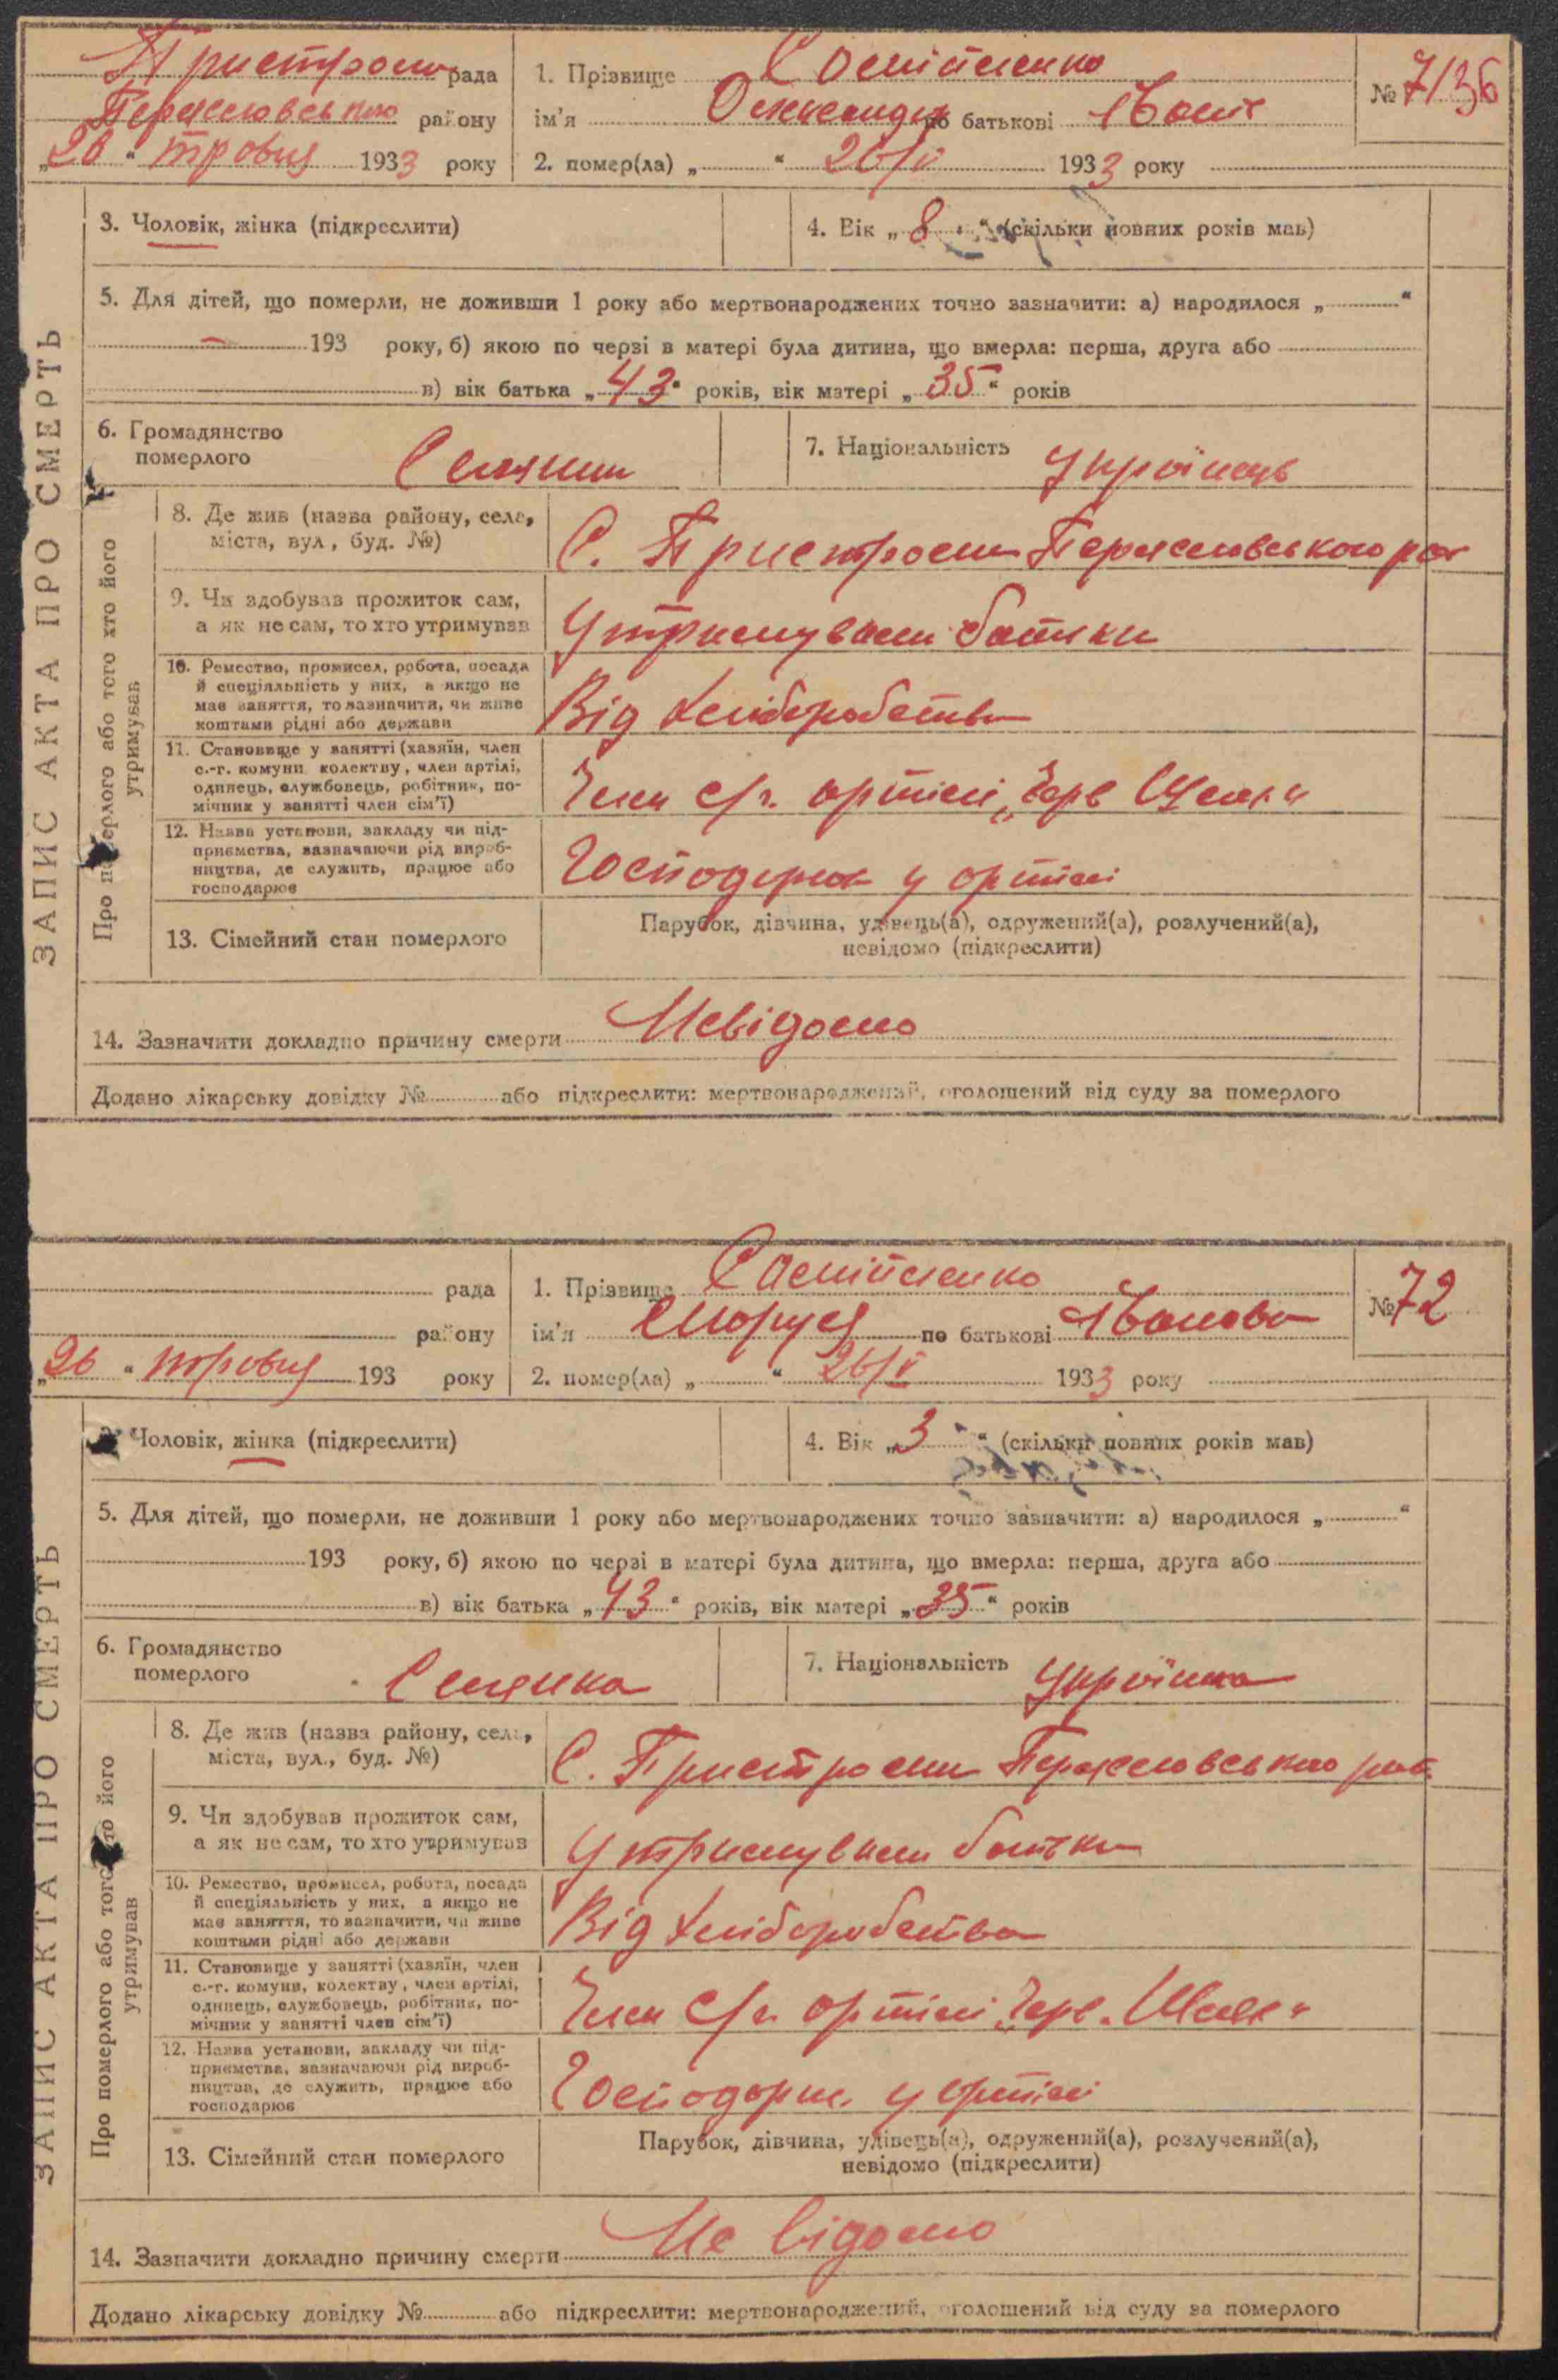 Пристроми рада
1. Прізвище Самійленко
№ 71/36
району
ім'я Олександр по батькові Іванів
„26“ травня 1933 року
2. помер(ла) „ “ 26/V 1933 року
3. Чоловік, жінка (підкреслити)
4. Вік „8“ (скільки повних років мав)
5. Для дітей, що померли, не доживши 1 року або мертвонароджених точно зазначити: а) народилося „ “
— 193 року, б) якою по черзі в матері була дитина, що вмерла: перша, друга або
в) вік батька „43“ років, вік матері „35“ років
6. Громадянство
померлого
Селянин
7. Національність Українець
ЗАПИС АКТА ПРО СМЕРТЬ
Про померлого або того хто його
утримував
8. Де жив (назва району, села,
міста, вул., буд. №)
С. Пристроми
9. Чи здобував прожиток сам,
а як не сам, то хто утримував
Утримували батьки
10. Ремество, промисел, робота, посада
й спеціяльність у них, а якщо не
має заняття, то зазначити, чи живе
коштами рідні або держави
Від хліборобства
11. Становище у занятті (хазяїн, член
с.-г. комуни, колективу, член артілі,
одинець, службовець, робітник, по-
мічник у занятті член сім'ї)
Член с/г. артілі „Черв
12. Назва установи, закладу чи під-
приємства, зазначаючи рід вироб-
ництва, де служить, працює або
господарює
Господарює у артілі
13. Сімейний стан померлого
Парубок, дівчина, удівець(а), одружений(а), розлучений(а),
невідомо (підкреслити)
14. Зазначити докладно причину смерти Невідомо
Додано лікарську довідку № або підкреслити: мертвонароджений, оголошений від суду за померлого
рада
1. Прізвище Самійленко
№ 72
району
ім'я Маруся по батькові Іванова
„26“ травня 193 року
2. помер(ла) „ “ 26/V 1933 року
3. Чоловік, жінка (підкреслити)
4. Вік „3“ (скільки повних років мав)
5. Для дітей, що померли, не доживши 1 року або мертвонароджених точно зазначити: а) народилося „ “
193 року, б) якою по черзі в матері була дитина, що вмерла: перша, друга або
в) вік батька „43“ років, вік матері „35“ років
6. Громадянство
померлого
Селянка
7. Національність Українка
ЗАПИС АКТА ПРО СМЕРТЬ
Про померлого або того хто його
утримував
8. Де жив (назва району, села,
міста, вул., буд. №)
С. Пристроми
9. Чи здобував прожиток сам,
а як не сам, то хто утримував
Утримували батьки
10. Ремество, промисел, робота, посада
й спеціяльність у них, а якщо не
має заняття, то зазначити, чи живе
коштами рідні або держави
Від хліборобства
11. Становище у занятті (хазяїн, член
с.-г. комуни, колективу, член артілі,
одинець, службовець, робітник, по-
мічник у занятті член сім'ї)
Член с/г. артілі „Черв.
12. Назва установи, закладу чи під-
приємства, зазначаючи рід вироб-
ництва, де служить, працює або
господарює
Господарює у артілі
13. Сімейний стан померлого
Парубок, дівчина, удівець(а), одружений(а), розлучений(а),
невідомо (підкреслити)
14. Зазначити докладно причину смерти Не відомо
Додано лікарську довідку № або підкреслити: мертвонароджений, оголошений від суду за померлого